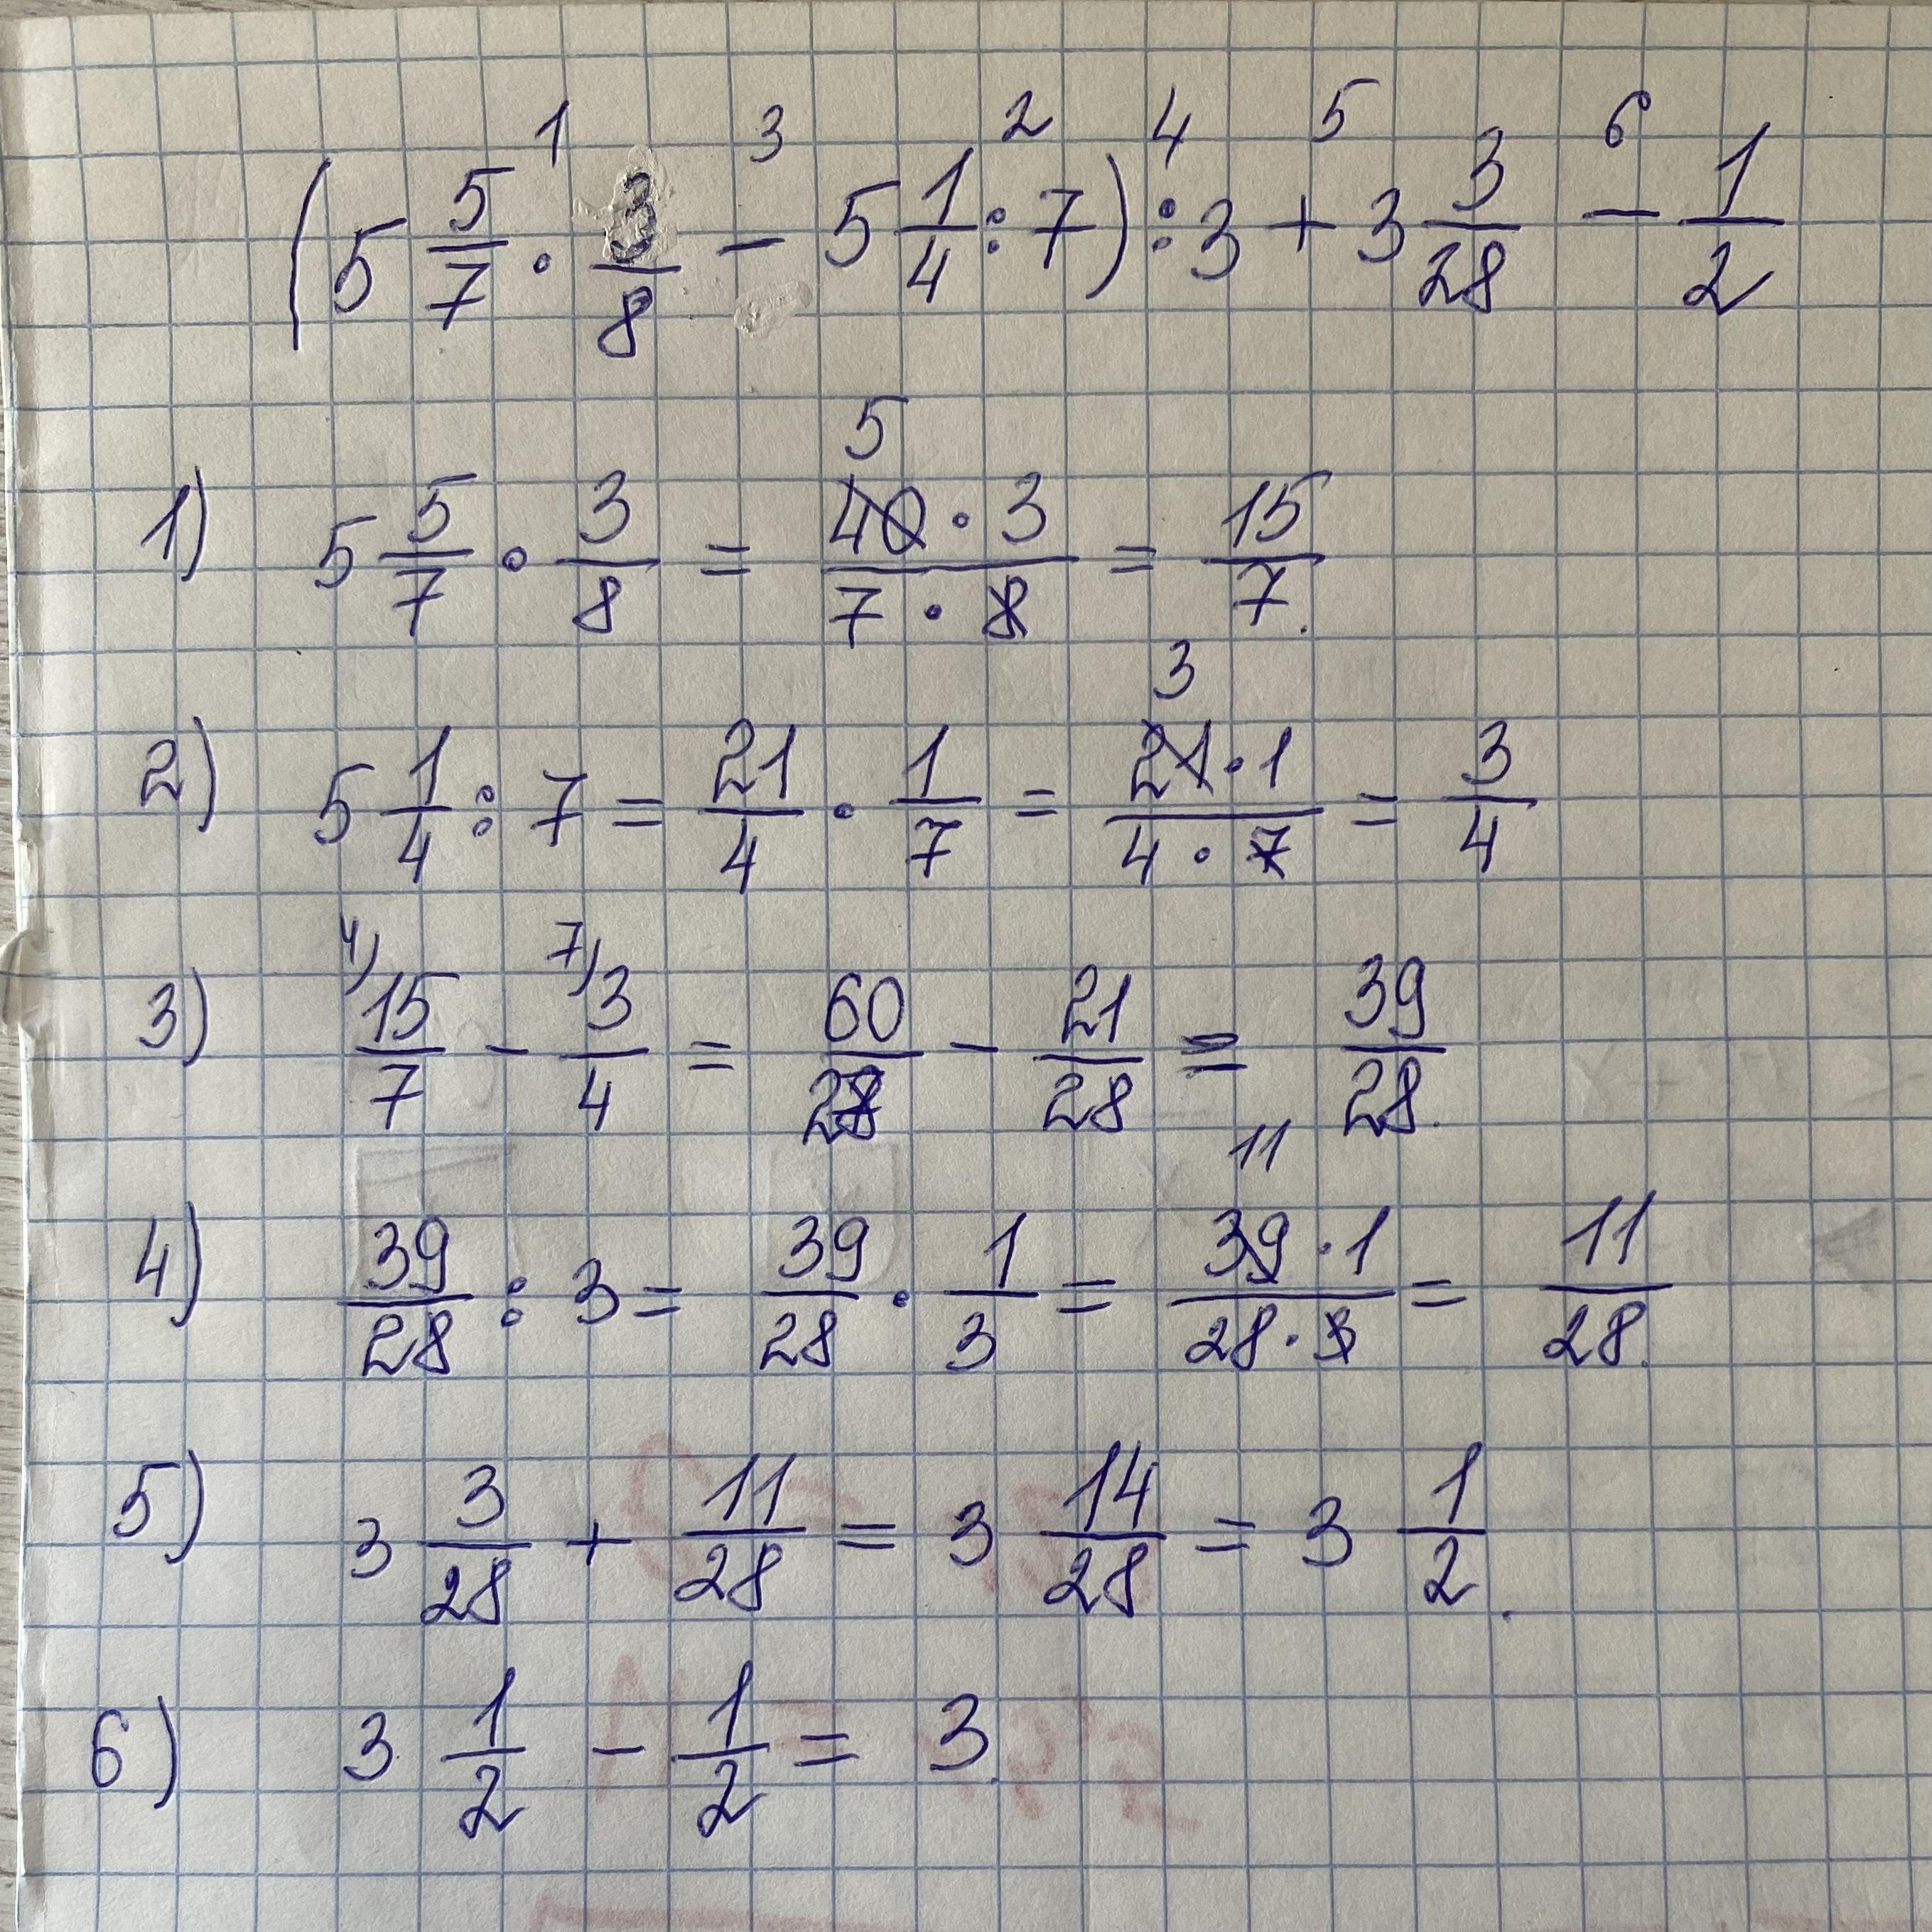 1 3 2 4 5 6
(5 5/7 · 3/8 − 5 1/4 : 7) : 3 + 3 3/28 − 1/2
5
1) 5 5/7 · 3/8 = 40 · 3 / 7 · 8 = 15/7.
3
2) 5 1/4 : 7 = 21/4 · 1/7 = 21 · 1 / 4 · 7 = 3/4
4) 7)
3) 15/7 − 3/4 = 60/28 − 21/28 = 39/28.
11
4) 39/28 : 3 = 39/28 · 1/3 = 39 · 1 / 28 · 3 = 11/28.
5) 3 3/28 + 11/28 = 3 14/28 = 3 1/2.
6) 3 1/2 − 1/2 = 3.